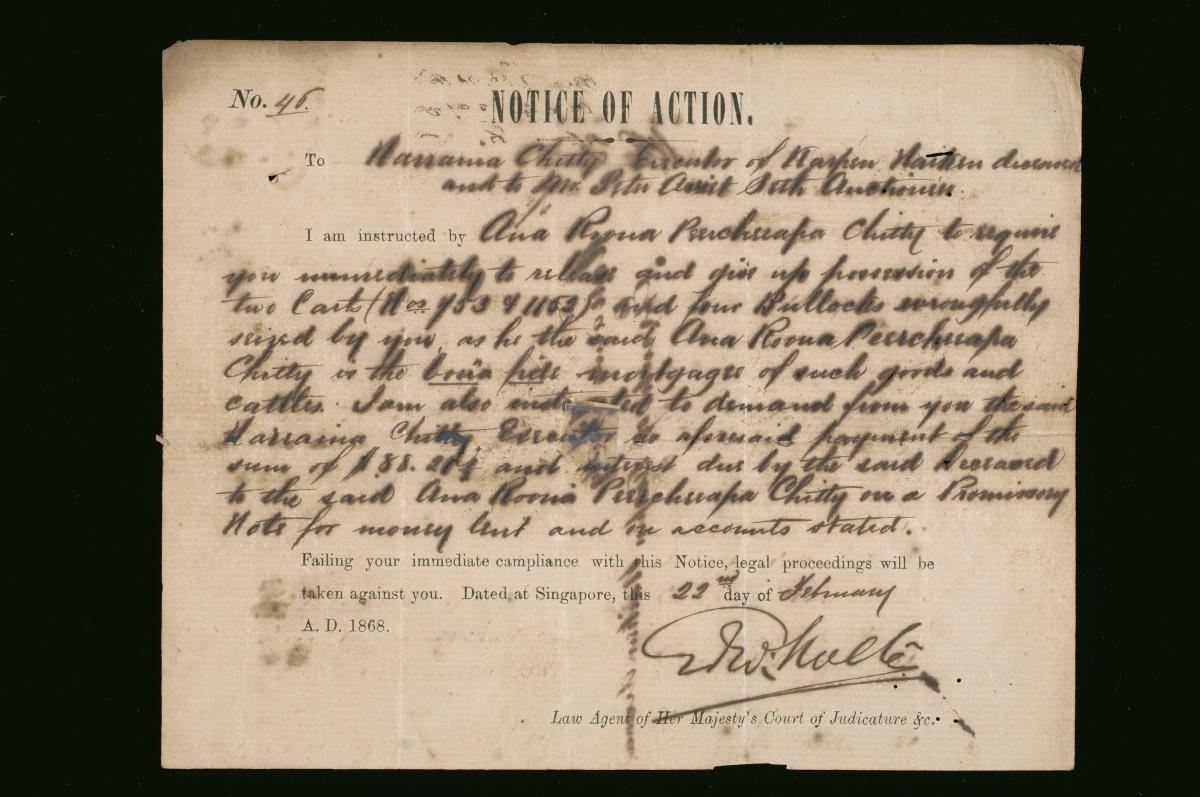 No. 46.
NOTICE OF ACTION.
To Narraina Chitty Executor of Karpen deceased
and to Mr. Peter Seth Auctioneer
I am instructed by Ana Roona Peercheeapa Chitty to require
you immediately to release and give up possession of the
two Carts (Nos 753 & 1153) and four Bullocks wrongfully
seized by you, as he the said, Ana Roona Peerchseapa
Chitty is the bona fide mortgagee of such goods and
cattles. I am also instructed to demand from you the said
Narraina Chitty Executor as aforesaid payment of the
sum of $88. and interest due by the said Deceased
to the said Ana Roona Peerchseapa Chitty on a Promissory
Note for money lent and on accounts stated.
Failing your immediate campliance with this Notice, legal proceedings will be
taken against you. Dated at Singapore, this 22nd day of February
A. D. 1868.
Law Agent of Her Majesty's Court of Judicature &c.